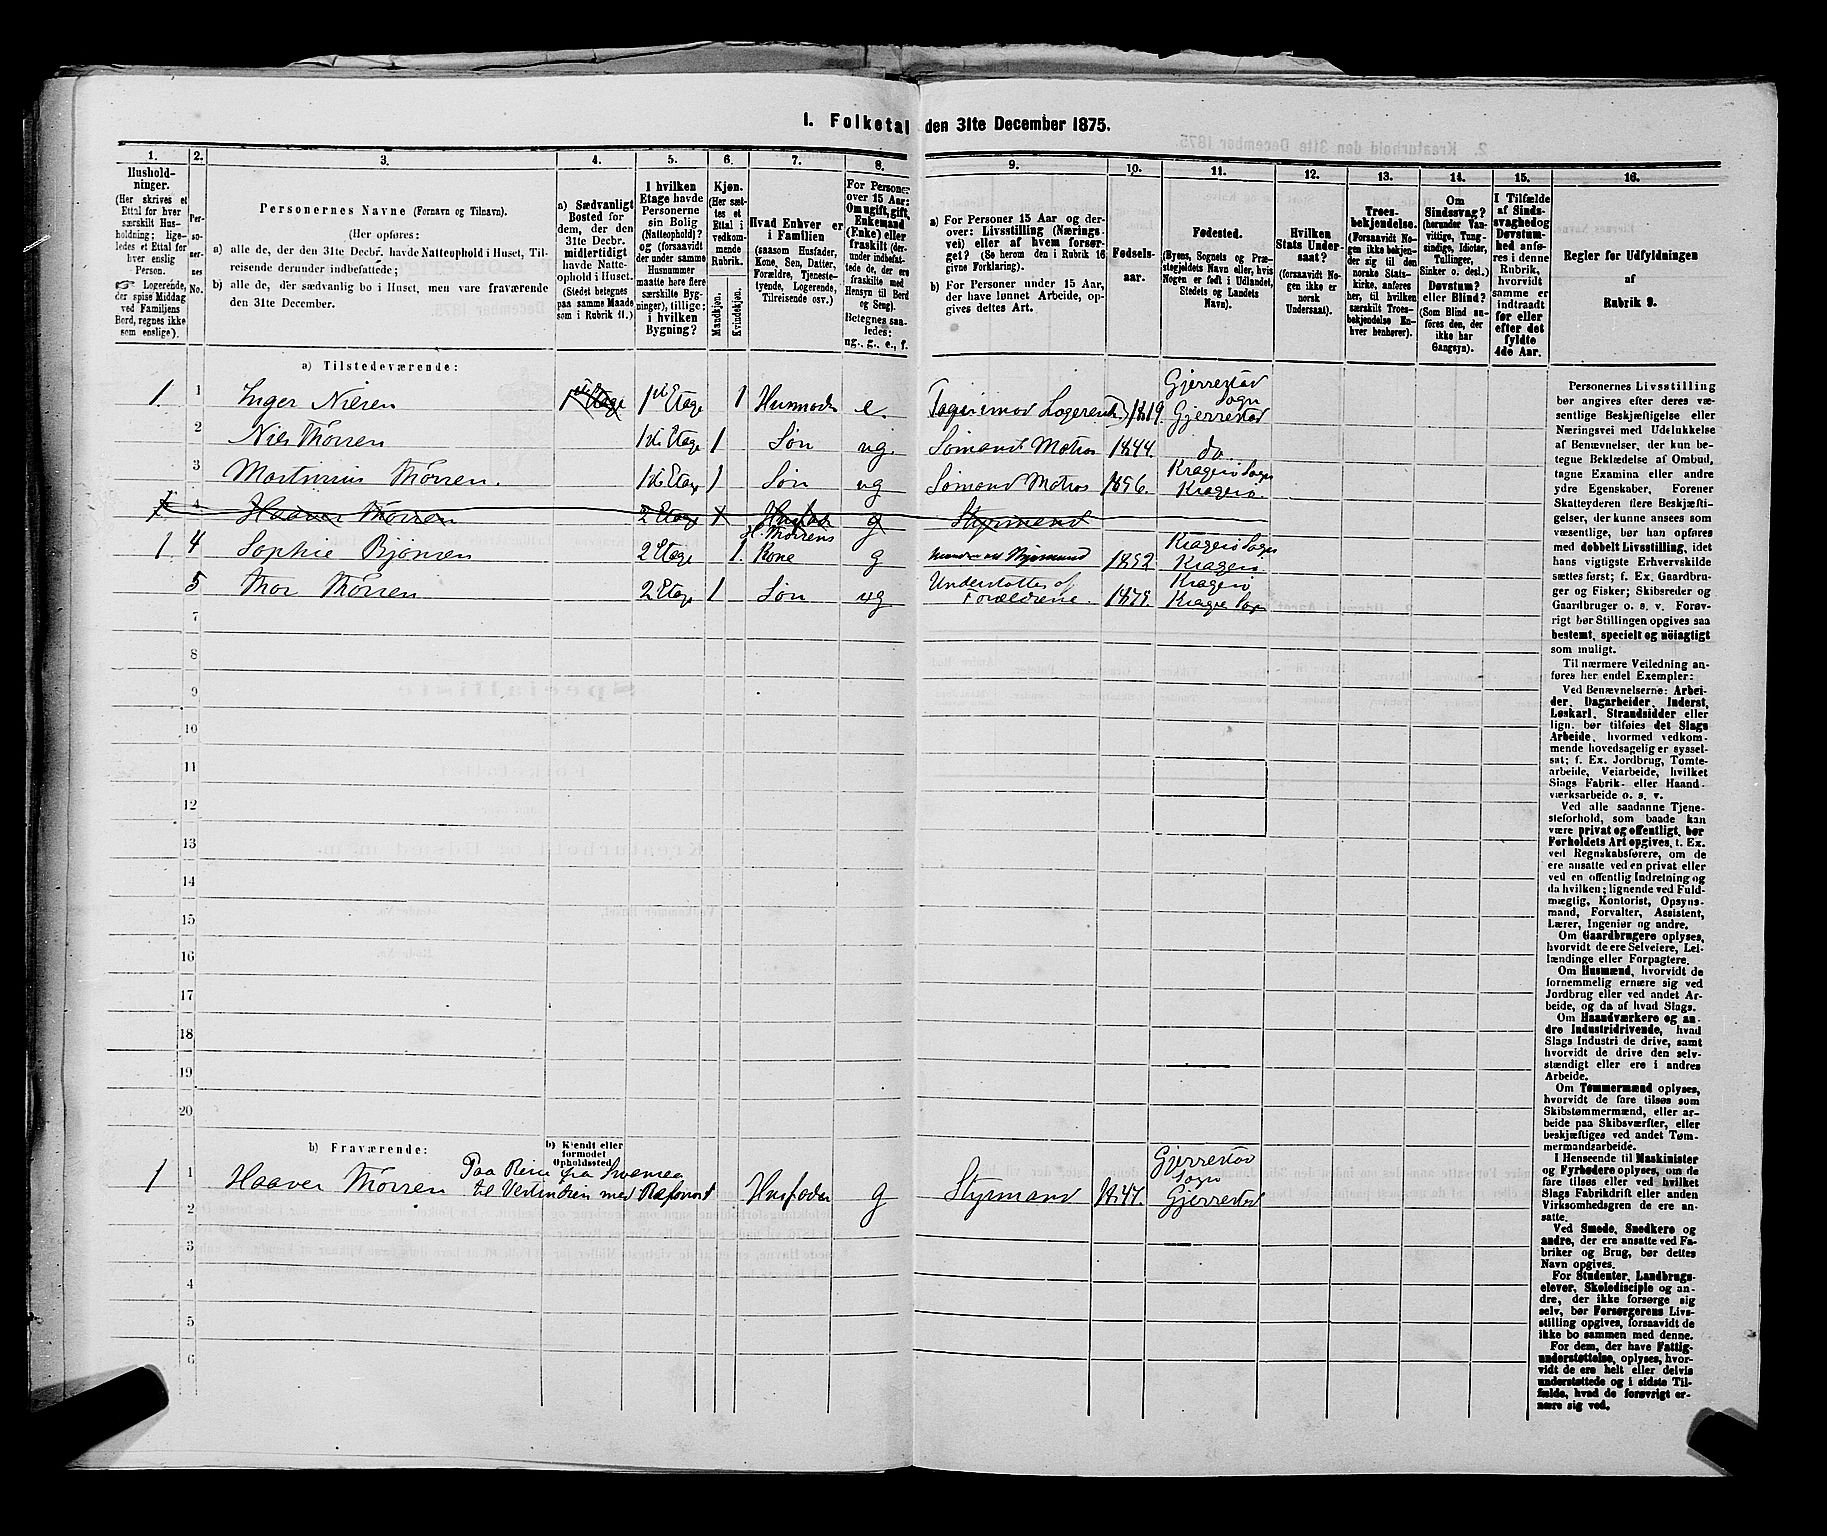 1. Folketal den 31te December 1875.
1. 2. 3. 4. 5. 6. 7. 8. 9. 10. 11. 12. 13. 14. 15. 16.
Hushold-
ninger.
(Her skrives et
Ettal for hver
særskilt Hus-
holdning; lige-
ledes et Ettal for
hver enslig
Person.
☞ Logerende,
der spise Middag
ved Familiens
Bord, regnes ikke
som enslige).
Per-
so-
ner-
nes
No.
Personernes Navne (Fornavn og Tilnavn).
(Her opføres:
a) alle de, der den 31te Decbr. havde Natteophold i Huset, Til-
reisende derunder indbefattede;
b) alle de, der sædvanlig bo i Huset, men vare fraværende
den 31te December.
a) Sædvanligt
Bosted for
dem, der den
31te Decbr.
midlertidigt
havde Natte-
ophold i Huset.
(Stedet betegnes
paa samme Maade
som i Rubrik 11.)
I hvilken
Etage havde
Personerne
sin Bolig
(Natteophold)?
og (forsaavidt
der under samme
Husnummer
maatte høre flere
særskilte Byg-
ninger), tillige:
i hvilken
Bygning?
Kjøn.
(Her sæt-
tes et
Ettal i
vedkom-
mende
Rubrik.
Mandkjøn.
Kvindekjøn.
Hvad Enhver er
i Familien
(saasom Husfader,
Kone, Søn, Datter,
Forældre, Tjeneste-
tyende, Logerende,
Tilreisende osv.)
For Personer
over 15 Aar:
Om ugift, gift,
Enkemand
(Enke) eller
fraskilt (der-
under indbefat-
tede de, der ere
fraskilte med
Hensyn til Bord
og Seng).
Betegnes saa-
ledes:
ug., g., e., f.
a) For Personer 15 Aar og der-
over: Livsstilling (Nærings-
vei) eller af hvem forsør-
get? (Se herom den i Rubrik 16
givne Forklaring).
b) For Personer under 15 Aar,
der have lønnet Arbeide, op-
gives dettes Art.
Fødsels-
aar.
Fødested.
(Byens, Sognets og Præ-
stegjeldets Navn eller, hvis
Nogen er født i Udlandet,
Stedets og Landets
Navn).
Hvilken
Stats Under-
saat?
(forsaavidt No-
gen ikke er
norsk
Undersaat).
Troes-
bekjendelse.
(Forsaavidt No-
gen ikke bekjen-
der sig til den
norske Stats-
kirke, anføres
her, til hvilken
særskilt Troes-
bekjendelse En-
hver henhører).
Om
Sindssvag?
(herunder Van-
vittige, Tung-
sindige, Idioter,
Tullinger,
Sinker o. desl.)
Døvstum?
eller Blind?
(Som Blind an-
føres den, der
ikke har
Gangsyn).
I Tilfælde
af Sinds-
svaghed og
Døvstum-
hed anfø-
res i denne
Rubrik,
hvorvidt
samme er
indtraadt
før eller
efter det
fyldte
4de Aar.
Regler for Udfyldningen
af
Rubrik 9.
a) Tilstedeværende:
1 1 Inger Nilsen 1st Etage 1st Etage 1 Husmoder e. Logerende 1819. Gjerrestad Sogn Gjerrestad
2 Niels Thorsen 1ste Etage 1 Søn ug. Sømand Matros 1844. do.
3 Martinius Thorsen. 1ste Etage 1 Søn ug Sømand Matros 1856. Kragerø Sogn Kragerø
1 4 Haaver Thorsen 2 Etage 1 Husfader g Styrmand
1 4 Sophie Bjønsen 2 Etage 1. H. Thorsens Kone g 1852 Kragerø Sogn Kragerø
5 Thor Thorsen 2 Etage 1 Søn ug Understøttes af Forældrene. 1875. Kragerø Kragerø Sogn
7
8
9
10
11
12
13
14
15
16
17
18
19
20
b) Fraværende:
b) Kjendt eller
formodet
Opholdssted.
1 1 Haaver Thorsen Paa Reise fra Swansea til Vestindien med Husfader g Styrmand 1847. Gjerrestad Sogn Gjerrestad
2
3
4
5
6
Personernes Livsstilling
bør angives efter deres væ-
sentlige Beskjæftigelse eller
Næringsvei med Udelukkelse
af Benævnelser, der kun be-
tegne Beklædelse af Ombud,
tagne Examina eller andre
ydre Egenskaber, Forener
Skatteyderen flere Beskjæfti-
gelser, der kunne ansees som
væsentlige, bør han opføres
med dobbelt Livsstilling, idet
hans vigtigste Erhvervskilde
sættes først; f. Ex. Gaardbru-
ger og Fisker; Skibsreder og
Gaardbruger o. s. v. Forøv-
rigt bør Stillingen opgives saa
bestemt, specielt og nøiagtigt
som muligt.
Til nærmere Veiledning an-
føres her endel Exempler:
Ved Benævnelserne: Arbei-
der, Dagarbeider, Inderst,
Løskarl, Strandsidder eller
lign. bør tilføies det Slags
Arbeide, hvormed vedkom-
mende hovedsagelig er syssel-
sat; f. Ex. Jordbrug, Tomte-
arbeide, Veiarbeide, hvilket
Slags Fabrik- eller Haand-
værksarbeide o. s. v.
Ved alle saadanne Tjene-
steforhold, som baade kan
være privat og offentligt, bør
Forholdets Art opgives, t. Ex.
ved Regnskabsførere, om de
ere ansatte ved en privat eller
ved en offentlig Indretning og
da hvilken; lignende ved Fuld-
mægtig, Kontorist, Opsyns-
mand, Forvalter, Assistent,
Lærer, Ingeniør og andre.
Om Gaardbrugere oplyses,
hvorvidt de ere Selveiere, Lei-
lændinge eller Forpagtere.
Om Husmænd, hvorvidt de
fornemmelig ernære sig ved
Jordbrug eller ved andet Ar-
beide, og da af hvad Slags.
Om Haandværkere og an-
dre Industridrivende, hvad
Slags Industri de drive, samt
hvorvidt de drive den selv-
stændigt eller ere i andres
Arbeide.
Om Tømmermænd oplyses,
hvorvidt de fare tilsøs som
Skibstømmermænd, eller ar-
beide paa Skibsværfter, eller
beskjæftiges ved andet Tøm-
mermandsarbeide.
I Henseende til Maskinister
og Fyrbødere oplyses, om de
fare tilsøs eller ved hvilket
Slags Fabrikdrift eller anden
Virksomhedsgren de ere an-
satte.
Ved Smede, Snedkere og
andre, der ere ansatte ved Fa-
briker og Brug, bør dettes
Navn opgives.
For Studenter, Landbrugs-
elever, Skoledisciple og an-
dre, der ikke forsørge sig
selv, bør Forsørgerens Livs-
stilling opgives, forsaavidt de
ikke bo sammen med denne.
For dem, der have Fattig-
understøttelse, oplyses, hvor-
vidt de ere helt eller delvis
understøttede og i sidste Til-
fælde, hvad de forøvrigt er-
nære sig ved.